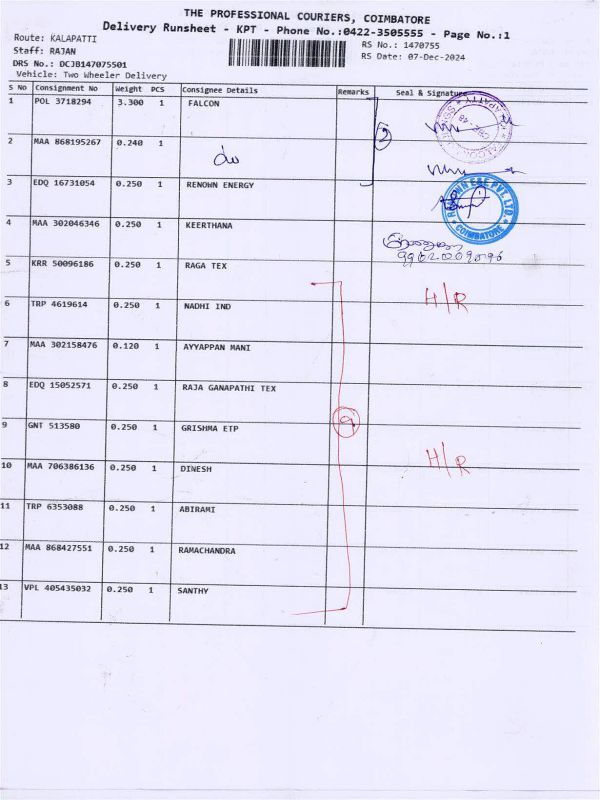 THE PROFESSIONAL COURIERS, COIMBATORE
Delivery Runsheet - KPT - Phone No.:0422-3505555 - Page No.:1
Route: KALAPATTI
RS No.: 1470755
Staff: RAJAN
RS Date: 07-Dec-2024
DRS No.: DCJB147075501
Vehicle: Two Wheeler Delivery
S No Consignment No Weight PCS Consignee Details Remarks Seal & Signature
1 POL 3718294 3.300 1 FALCON
2 MAA 868195267 0.240 1
do
2
3 EDQ 16731054 0.250 1 RENOWN ENERGY
COIMBATORE
4 MAA 302046346 0.250 1 KEERTHANA
5 KRR 50096186 0.250 1 RAGA TEX
H/R
6 TRP 4619614 0.250 1 NADHI IND
7 MAA 302158476 0.120 1 AYYAPPAN MANI
8 EDQ 15052571 0.250 1 RAJA GANAPATHI TEX
9 GNT 513580 0.250 1 GRISHMA ETP
9
H/R
10 MAA 706386136 0.250 1 DINESH
11 TRP 6353088 0.250 1 ABIRAMI
12 MAA 868427551 0.250 1 RAMACHANDRA
13 VPL 405435032 0.250 1 SANTHY